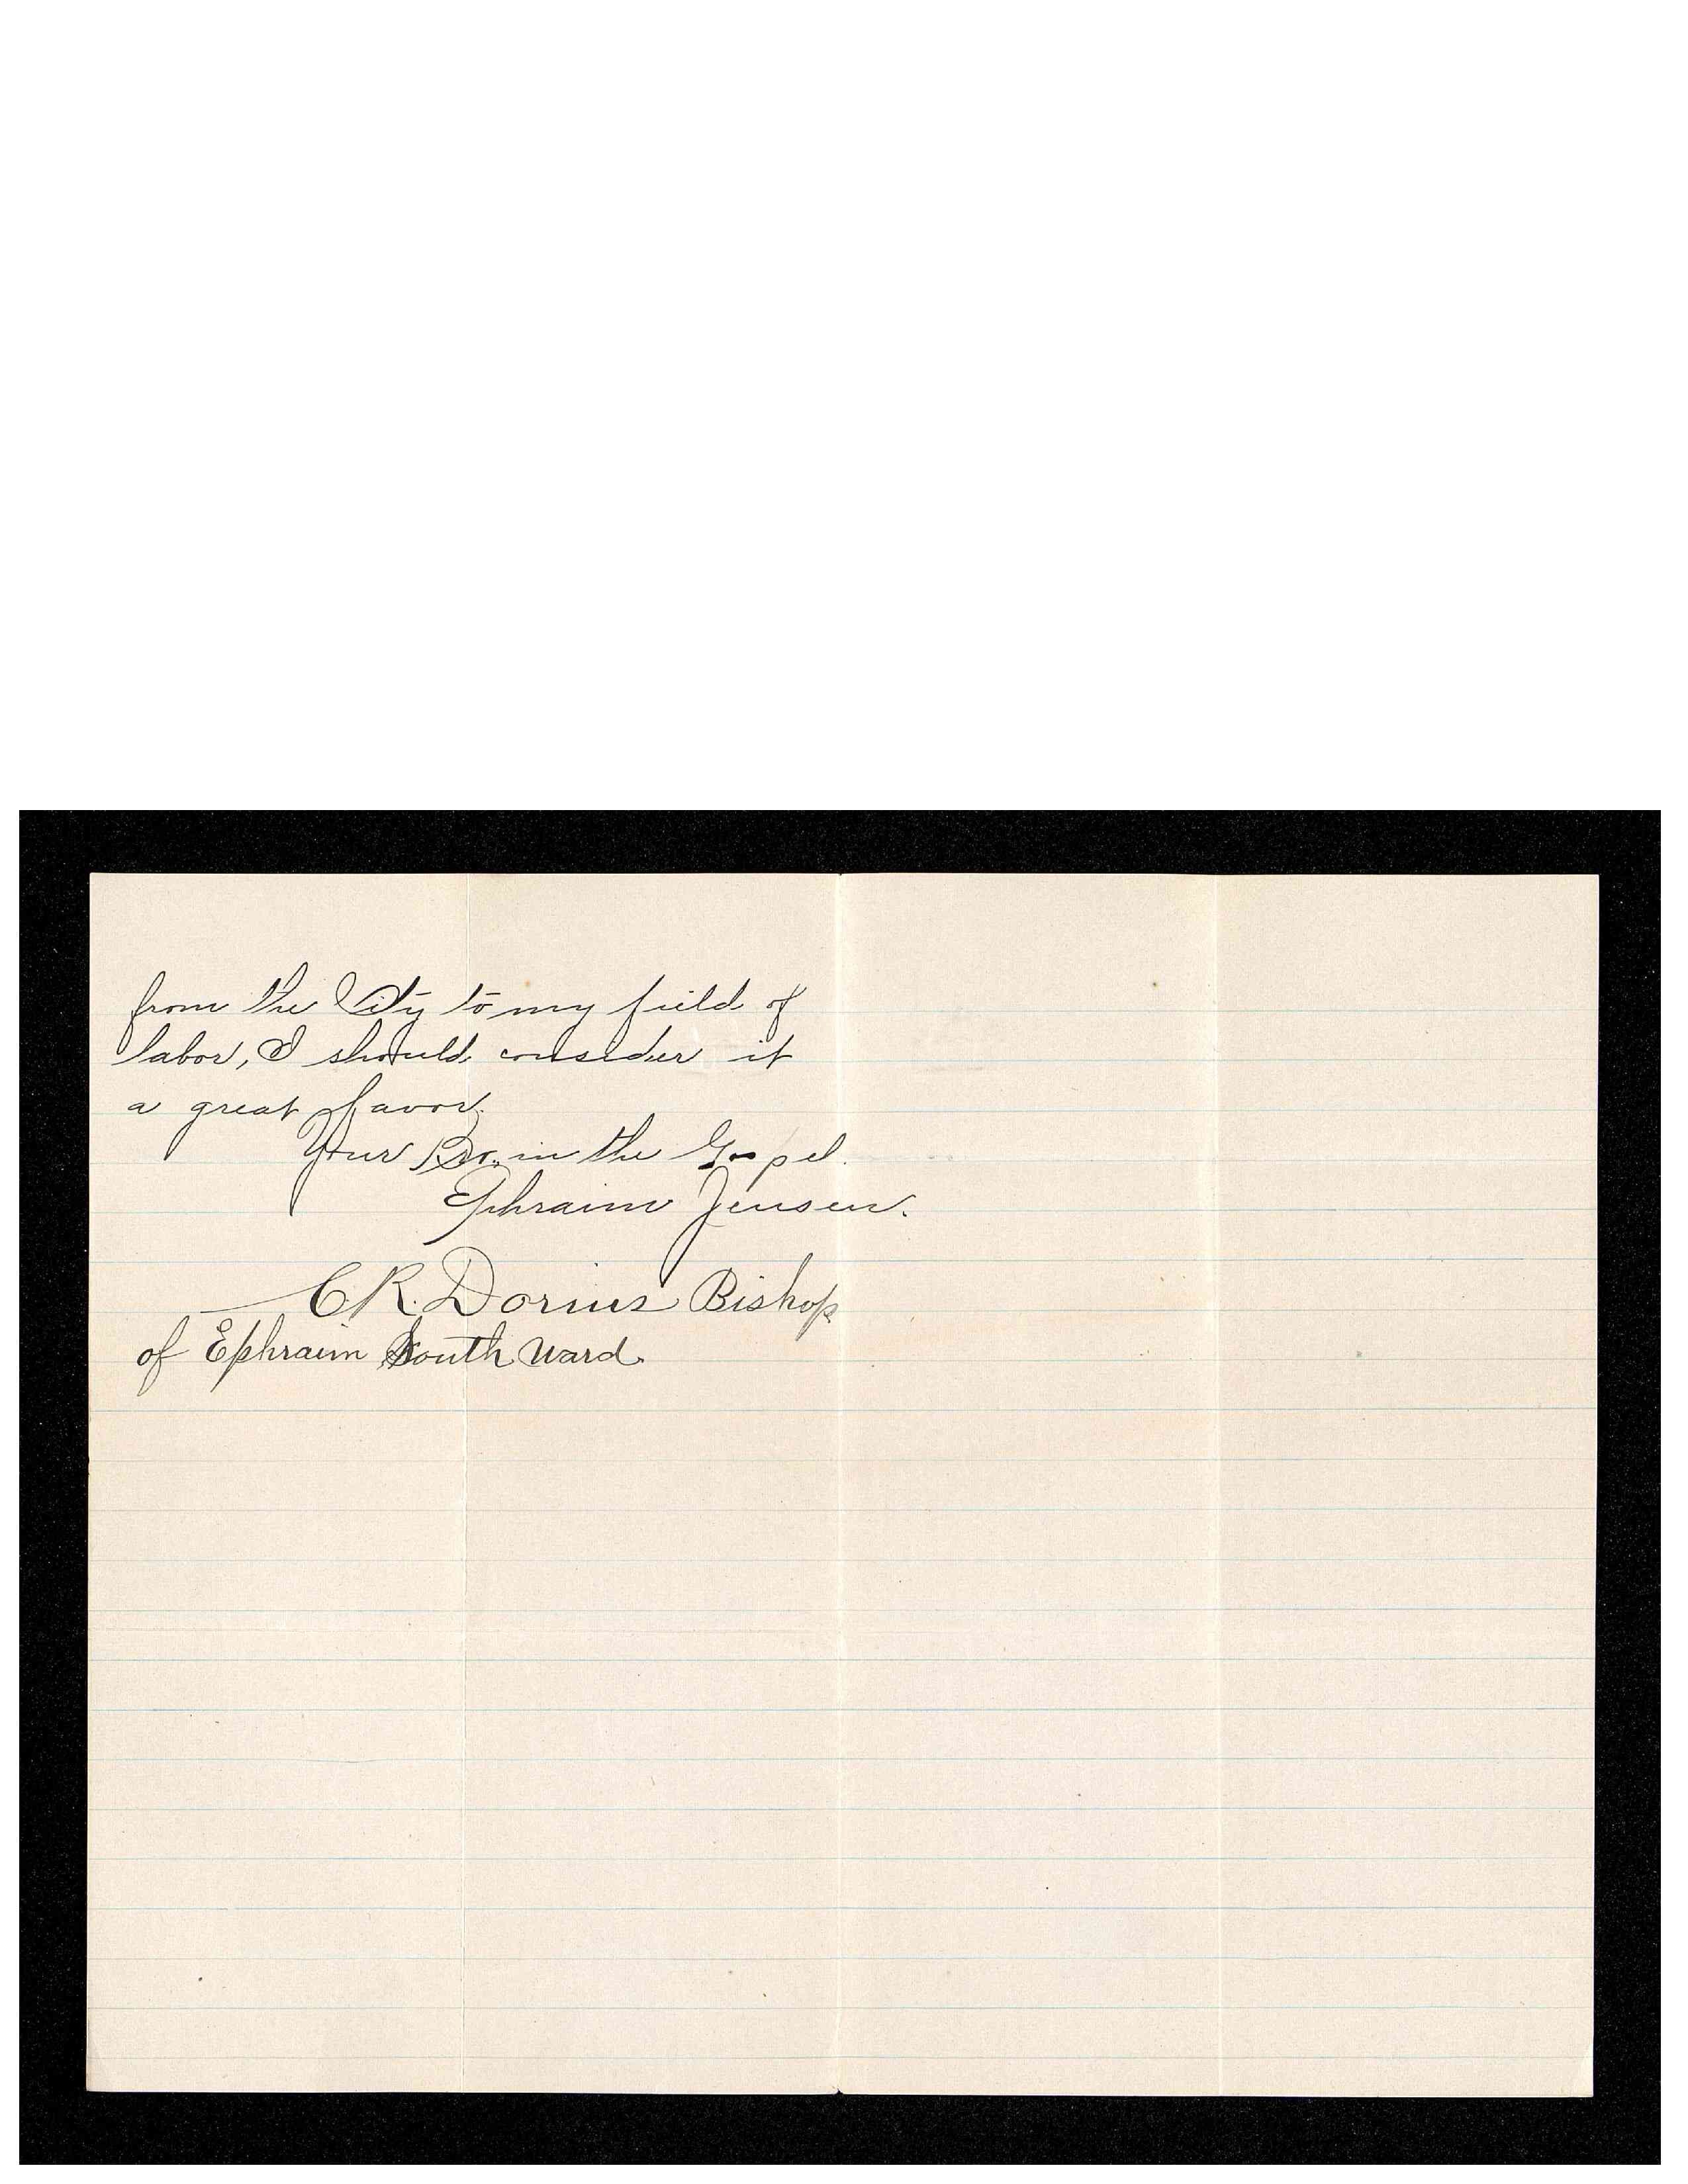 from the City to my field of
labor, I should consider it
a great favor.
Your Bro. in the Gospel.
Ephraim Jensen.
C R. Dorius Bishop
of Ephraim South Ward.